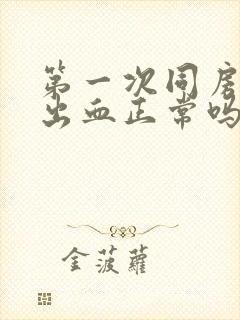 第一次同房
出血正常吗
金菠蘿